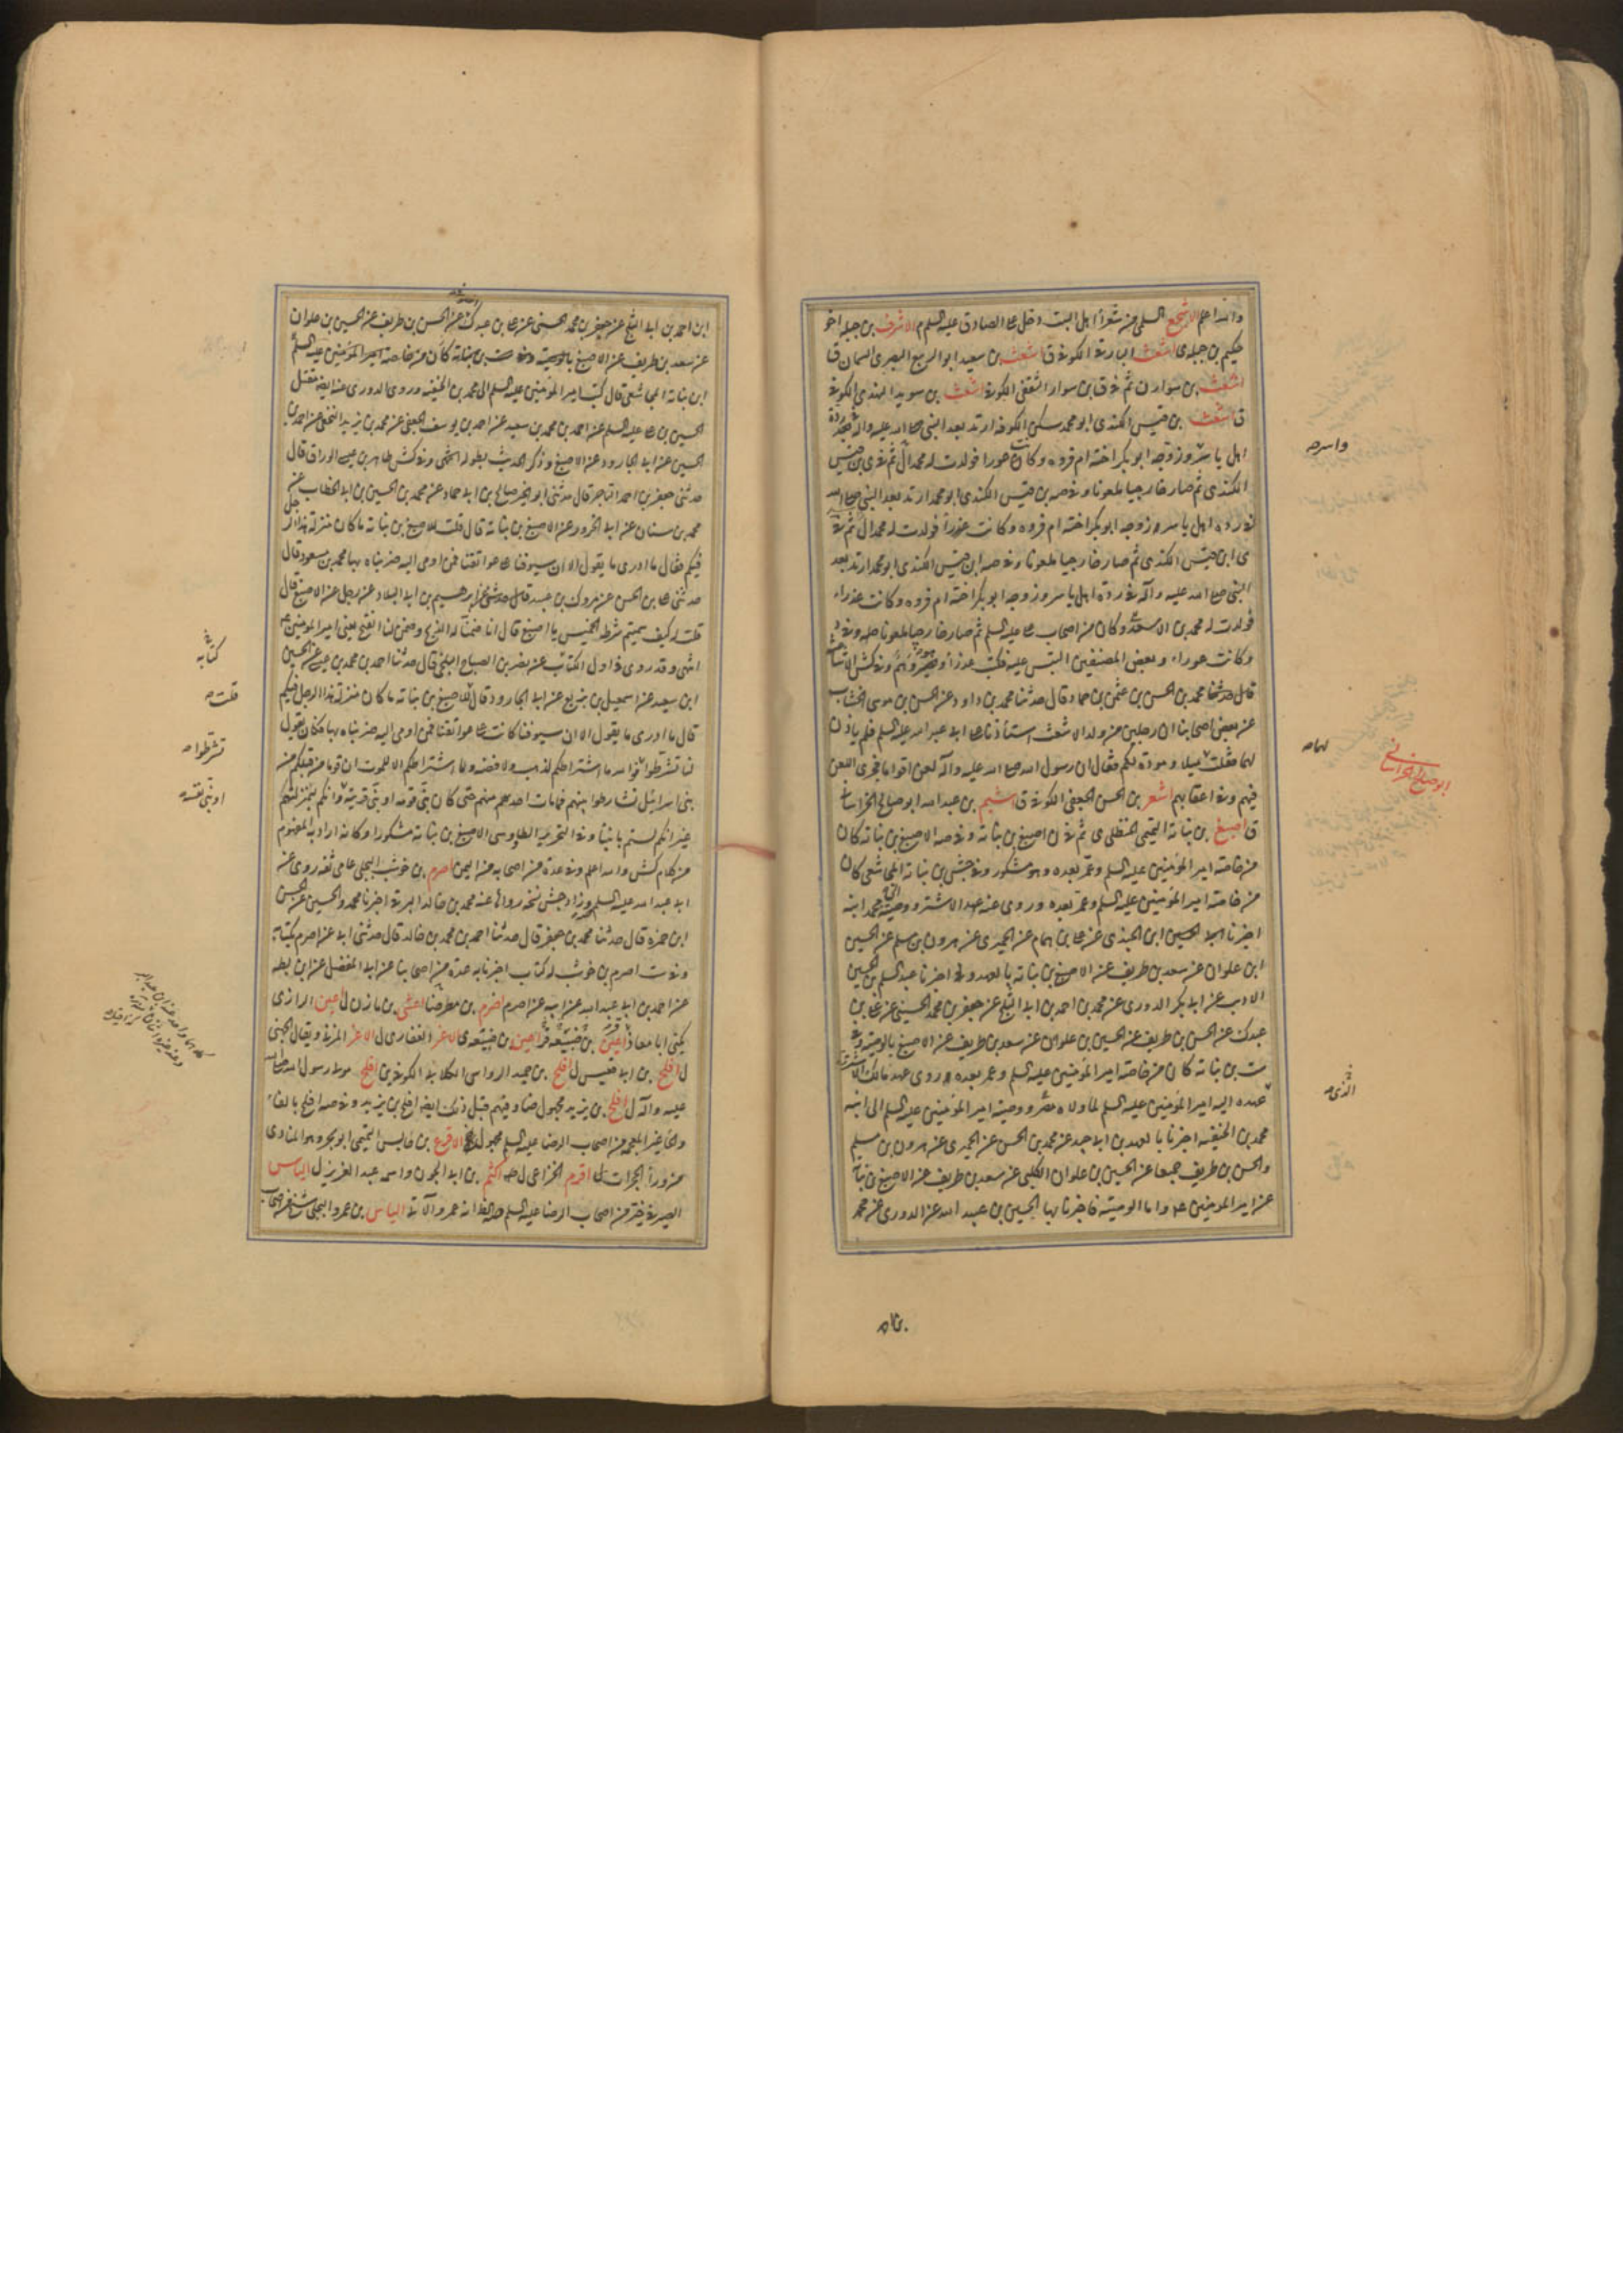 والله اعلم الاشجع السلمى من شعراء اهل البيت دخل على الصادق عليه السلم م الاشرف بن جبله اخو
حكيم بن جبله ى اشعث البارقى الكوفى ق اشعث بن سعيد ابو الربيع البصرى السمان ق
اشعث بن سوار ن ثم فى ق بن سوار الثقفى الكوفى اشعث بن سويد النهدى الكوفى
ق اشعث بن قيس الكندى ابو محمد سكن الكوفه ارتد بعد النبى صلى الله عليه وآله فى ردة
اهل ياسر وزوجه ابو بكر اخته ام فروه وكانت عورا فولدت له محمدا ل ثم فى ى بن قيس
الكندى ثم صار خارجيا ملعونا وفى صه بن قيس الكندى ابو محمد ارتد بعد النبى صلى الله
فى رده اهل ياسر وزوجه ابو بكر اخته ام فروه وكانت عوراء فولدت له محمدا ل ثم فى
ى ابن قيس الكندى ثم صار خارجيا ملعونا وفى صه ابن قيس الكندى ابو محمد ارتد بعد
النبى صلى الله عليه وآله فى ردة اهل ياسر وزوجه ابو بكر اخته ام فروه وكانت عذراء
فولدت له محمد بن الاشعث وكان من اصحاب على عليه السلم ثم صار خارجيا ملعونا صه وفى د
وكانت عوراء وبعض المصنفين التبس عليه فكتب عذراء وهو وهم وفى كش
قال حدثنا محمد بن الحسن بن عثمن بن حماد قال حدثنا محمد بن داود عن الحسن بن موسى الخشاب
عن بعض اصحابنا ان رجلين من ولد الاشعث استأذنا على ابى عبد الله عليه السلم فلم ياذن
لهما فقلت ميلا ومودة لكم فقال ان رسول الله صلى الله عليه وآله لعن اقواما فجرى اللعن
فيهم وفى اعقابهم اشعر بن الحسن الجعفى الكوفى ق اشيم بن عبد الله ابو صالح الخراسانى
ق اصبغ بن نباتة التميمى الحنظلى ى ثم فى ن اصبغ بن نباته وفى صه الاصبغ بن نباته كان
من خاصة امير المؤمنين عليه السلم وعمر بعده وهو مشكور وفى جش بن نباته المجاشعى كان
من خاصة امير المؤمنين عليه السلم وعمر بعده وروى عنه عهد الاشتر ووصيته الى محمد ابنه
اخبرنا ابن الجندى عن على بن همام عن الحميرى عن هرون بن مسلم عن الحسين
ابن علوان عن سعد بن طريف عن الاصبغ بن نباته بالعهد اخبرنا عبد السلم بن الحسين
الاديب عن ابى بكر الدورى عن محمد بن احمد بن ابى الثلج عن جعفر بن محمد الحسينى عن على بن
عبدك عن الحسن بن طريف عن الحسين بن علوان عن سعد بن طريف عن الاصبغ بالوصية وفى
ست بن نباته كان من خاصة امير المؤمنين عليه السلم وعمر بعده وروى عهد مالك الاشتر الذى
عهده اليه امير المؤمنين عليه السلم لما ولاه مصر ووصية امير المؤمنين عليه السلم الى ابنه
محمد بن الحنفيه اخبرنا بالعهد بن ابى جيد عن محمد بن الحسن عن الحميرى عن هرون بن مسلم
والحسن بن طريف جميعا عن الحسين بن علوان الكلبى عن سعد بن طريف عن الاصبغ بن نباته
عن امير المومنين عه واما الوصية فاخبرنا بها الحسين بن عبيد الله عن الدورى عن محمد
واسر صه
لهما صه
ابو صالح الخراسانى
الذى صه
ابن احمد بن ابى الثلج عن جعفر بن محمد الحسينى عن على بن عبدك عن الحسن بن طريف عن الحسين بن علوان
عن سعد بن طريف عن الاصبغ بالوصية بن نباتة كان من خاصة امير المؤمنين عليه السلم
ابن نباتة المجاشعى قال كتب امير المؤمنين عليه السلم الى محمد بن الحنفيه وروى الدورى عنه ايضا مقتل
الحسين بن على عليه السلم عن احمد بن محمد بن سعيد عن احمد بن يوسف الجعفى عن محمد بن يزيد النخعى عن احمد بن
الحسين عن ابى الجارود عن الاصبغ وذكر الحديث بطوله انتهى وفى كش طاهر بن عيسى الوراق قال
حدثنى جعفر بن احمد التاجر قال حدثنى ابو الخير صالح بن ابى حماد عن محمد بن الحسين بن ابى الخطاب عن
محمد بن سنان عن ابى الجارود عن الاصبغ بن نباتة قال قلت للاصبغ بن نباته ما كان منزلة هذا الرجل
فيكم فقال ما ادرى ما يقول الا ان سيوفنا على عواتقنا فمن اومى اليه ضربناه بها محمد بن مسعود قال
حدثنى على بن الحسن عن مروك بن عبيد قال حدثنى ابرهيم بن ابى البلاد عن رجل عن الاصبغ قال
قلت له كيف سميتم شرطة الخميس يا اصبغ قال انا ضمنا له الذبح وضمن لنا الفتح يعنى امير المومنين عه
انتهى وقد روى فى اول الكتاب عن نصر بن الصباح البلخى قال حدثنا احمد بن محمد بن عيسى عن الحسين
ابن سعيد عن اسمعيل بن بزيع عن ابى الجارود قال للاصبغ بن نباته ما كان منزلة هذا الرجل فيكم
قال ما ادرى ما يقول الا ان سيوفنا كانت على عواتقنا فمن اومى اليه ضربناه بها وكان يقول
لنا تشرطوا فوالله ما اشتراطكم لذهب ولا فضه وما اشتراطكم الا للموت ان قوما من قبلكم من
بنى اسرائيل تشارطوا بينهم فما مات احد منهم حتى كان نبى قومه او نبى قريته وانكم لبمنزلتهم
غير انكم لستم بانبياء وفى التحرير الطاوسى الاصبغ بن نباتة مشكور وكانه اراد به المفهوم
من كلام كش والله اعلم وفى عدة من اصحابه من اليمن اصرم بن حوشب البجلى عامى ثقه روى عن
ابى عبد الله عليه السلم وزاد جش نسخه رواها عنه محمد بن خالد البرقى اخبرنا محمد والحسين عن الحسن
ابن حمزه قال حدثنا محمد بن جعفر قال حدثنا احمد بن محمد بن خالد قال حدثنى ابى عن اصرم بكتابه
وفى ست اصرم بن حوشب له كتاب اخبرنا به عدة من اصحابنا عن ابى المفضل عن ابن بطه
عن احمد بن ابى عبد الله عن ابيه عن اصرم اصرم بن مطر ضا اعشى بن مازن ل اعين الرازى
يكنى ابا معاذ اعين بن ضبيعه ى الاغر الغفارى ل الاغر المزنى ويقال الجهنى
ل افلح بن ابى قعيس ل افلح بن حميد الرواسى الكلابى الكوفى بن افلح مولى رسول الله صلى الله
عليه وآله ل افلح بن يزيد مجهول ضا وفيهم قبل ذلك ايضا افلح بن يزيد وفى صه افلح بالفاء
والحاء غير المعجمه من اصحاب الرضا عليه السلم مجهول الاقرع بن حابس التميمى ابو بحر وهو المنادى
من وراء الحجرات ل اقرم الخزاعى ل صه اكثم بن ابى الجون واسمه عبد العزيز ل الياس
الصيرفى خير من اصحاب الرضا عليه السلم صه الياس بن عمرو البجلى شيخ من اصحاب
كتابه
قلت صه
تشرطوا صه
او نبى نفسه صه
بن نباته